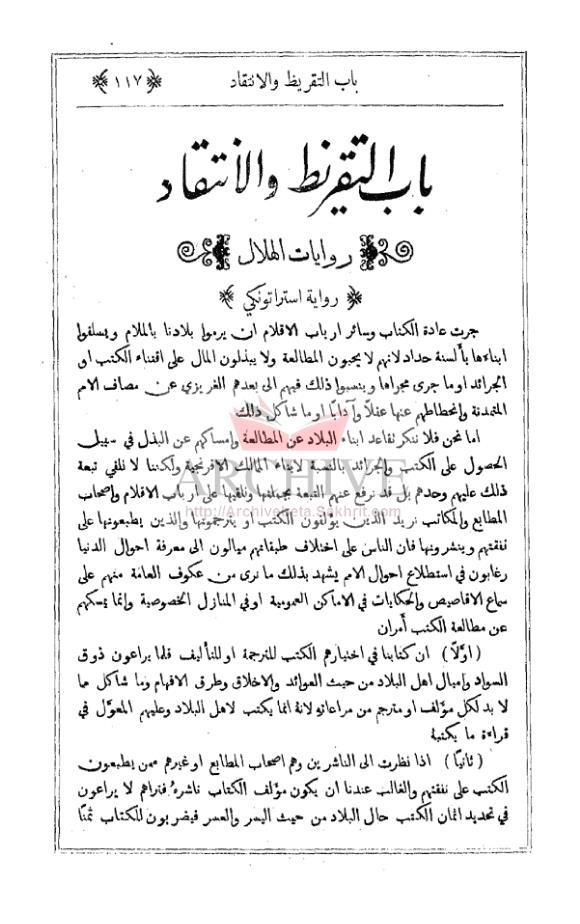 باب التقريظ والانتقاد ﴿ ١١٧ ﴾
باب التقريظ والانتقاد
روايات الهلال
﴿ رواية استراتونكي ﴾
جرت عادة الكتاب وسائر ارباب الاقلام ان يرموا بلادنا بالملام ويسلقوا
ابناءها بأَلسنة حداد لانهم لا يحبون المطالعة ولا يبذلون المال على اقتناء الكتب او
الجرائد او ما جرى مجراها وينسبوا ذلك فيهم الى بعدهم الغريزي عن مصاف الامم
المتمدنة وانحطاطهم عنها عقلاً وآدابًا او ما شاكل ذلك
اما نحن فلا ننكر تقاعد ابناء البلاد عن المطالعة وامساكهم عن البذل في سبيل
الحصول على الكتب والجرائد بالنسبة لابناء المالك الافرنجية ولكننا لا نلقي تبعة
ذلك عليهم وحدهم بل قد نرفع عنهم التبعة بجملتها ونلقيها على ارباب الاقلام واصحاب
المطابع والمكاتب نريد الذين يؤلفون الكتب او يترجمونها والذين يطبعونها على
نفقتهم وينشرونها فان الناس على اختلاف طبقاتهم ميالون الى معرفة احوال الدنيا
رغابون في استطلاع احوال الامم يشهد بذلك ما نرى من عكوف العامة منهم على
سماع الاقاصيص والحكايات في الاماكن العمومية او في المنازل الخصوصية وانما يمسكهم
عن مطالعة الكتب أمران
( اوَّلاً ) ان كتابنا في اختيارهم الكتب للترجمة او للتأليف قلما يراعون ذوق
السواد واميال اهل البلاد من حيث العوائد والاخلاق وطرق الافهام وما شاكل مما
لا بد لكل مؤلف او مترجم من مراعاته لانهُ انما يكتب لاهل البلاد وعليهم المعوَّل في
قراءة ما يكتبهُ
( ثانيًا ) اذا نظرت الى الناشرين وهم اصحاب المطابع او غيرهم ممن يطبعون
الكتب على نفقتهم والغالب عندنا ان يكون مؤلف الكتاب ناشرهُ فتراهم لا يراعون
في تحديد اثمان الكتب حال البلاد من حيث اليسر والعسر فيضربون للكتاب ثمنًا
ARCHIVE
http://Archivebeta.Sakhrit.com